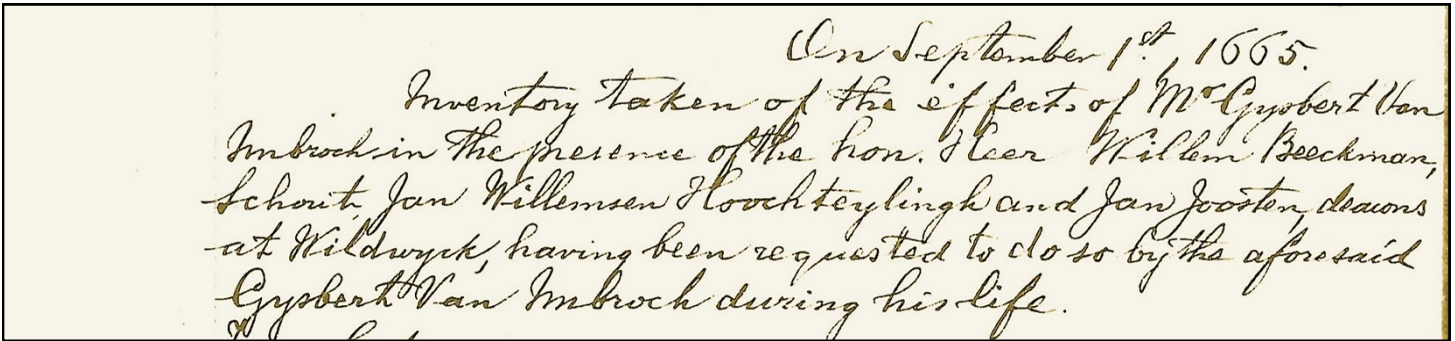 On September 1st, 1665.
Inventory taken of the effects of Mr Gysbert Van
Imbroch in the presence of the hon. Heer Willem Beeckman,
Schout, Jan Willemsen Hoochteylingh and Jan Joosten, deacons
at Wildwyck, having been requested to do so by the aforesaid
Gysbert Van Imbroch during his life.